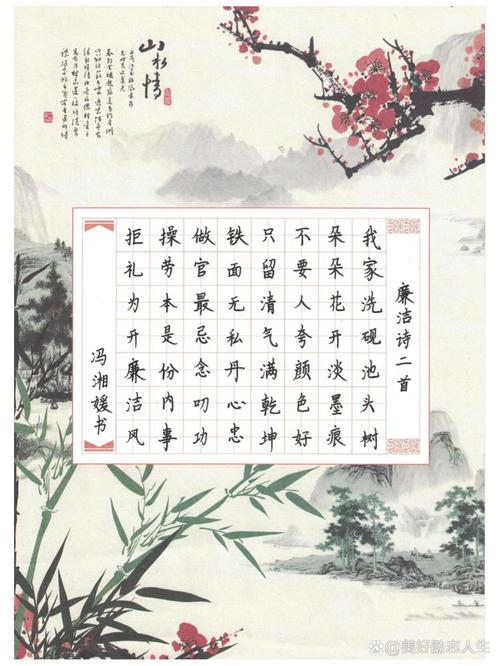 山水情
廉洁诗二首
我家洗砚池头树
朵朵花开淡墨痕
不要人夸颜色好
只留清气满乾坤
铁面无私丹心忠
做官最忌念叨功
操劳本是份内事
拒礼为开廉洁风
冯湘媛书
@美好励志人生